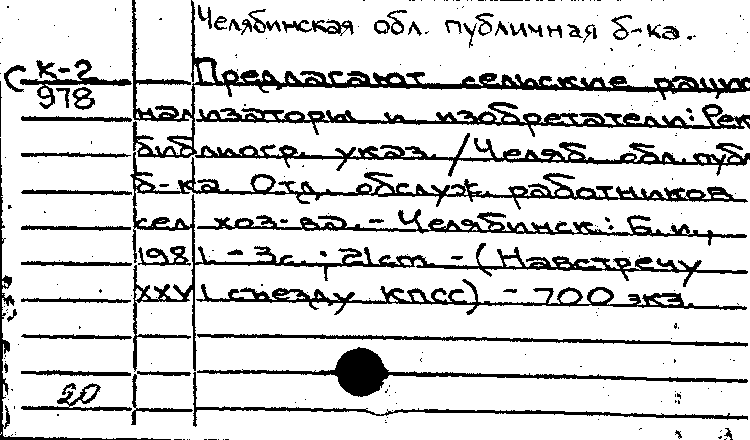 Челябинская обл. публичная б-ка.
С К-2
978
Предлагают сельские рацио
нализаторы и изобретатели: Рек.
библиогр. указ. / Челяб. обл. публ.
б-ка. Отд. обслуж. работников
сел. хоз-ва. - Челябинск: Б.и.,
1981. - 3с.; 21см. - (Навстречу
XXVI съезду КПСС). - 700 экз.
20